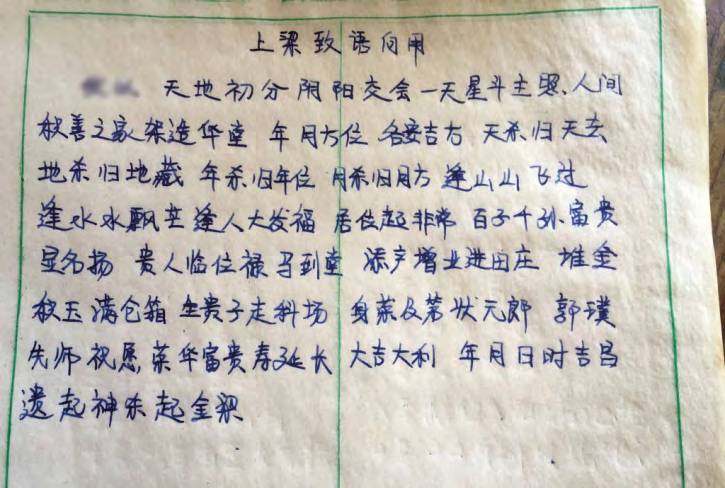 上梁致语向用
天地初分阴阳交会一天星斗主照、人间
积善之家架造华堂 年月方位 各安吉方 天杀归天去
地杀归地藏 年杀归年位 月杀归月方 逢山山飞过
逢水水飘茫 逢人大发福 居位起非常 百子千孙富贵
显名扬 贵人临位禄马到堂 添产增业进田庄 堆金
积玉满仓箱 生贵子走科场 身荣及第状元郎 郭璞
先师祝愿 荣华富贵寿延长 大吉大利 年月日时吉昌
起神杀起金梁